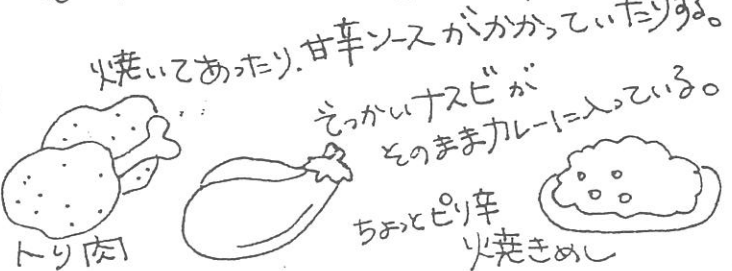 焼いてあったり、甘辛ソースがかかっていたりする。
でっかいナスビが
そのままカレーに入っている。
トリ肉
ちょっとピリ辛
焼きめし